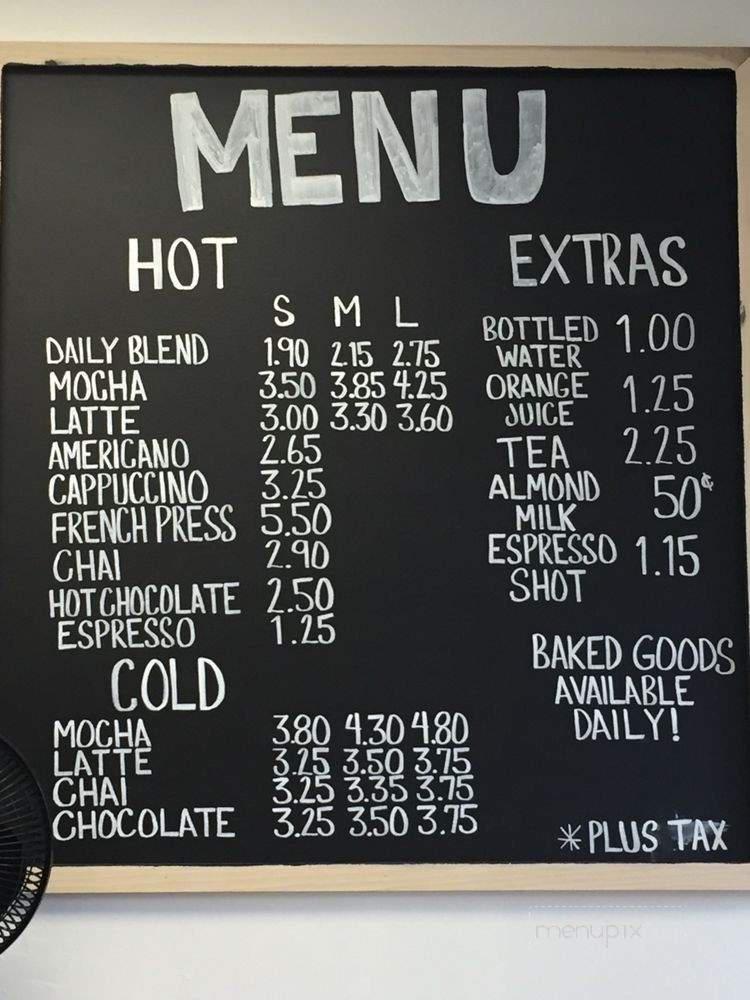 MENU
HOT
S M L
DAILY BLEND 1.90 2.15 2.75
MOCHA 3.50 3.85 4.25
LATTE 3.00 3.30 3.60
AMERICANO 2.65
CAPPUCCINO 3.25
FRENCH PRESS 5.50
CHAI 2.90
HOT CHOCOLATE 2.50
ESPRESSO 1.25
COLD
MOCHA 3.80 4.30 4.80
LATTE 3.25 3.50 3.75
CHAI 3.25 3.35 3.75
CHOCOLATE 3.25 3.50 3.75
EXTRAS
BOTTLED 1.00
WATER
ORANGE 1.25
JUICE
TEA 2.25
ALMOND 50¢
MILK
ESPRESSO 1.15
SHOT
BAKED GOODS
AVAILABLE
DAILY!
*PLUS TAX
menupix